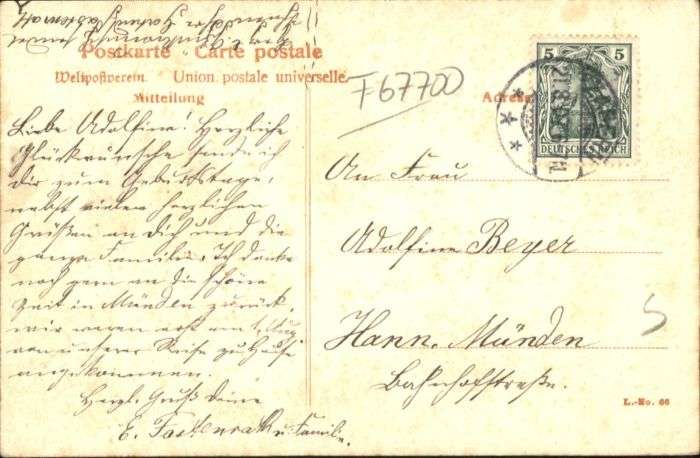 Postkarte Carte postale
Weltpostverein. Union postale universelle.
Mitteilung
F 67700
Liebe Adolfine! Herzliche
Glückwünsche sende ich
dir zum Geburtstage,
nebst vielen herzlichen
Grüßen an Dich und die
ganze Familie. Ich denke
noch gern an die schöne
Zeit in Münden zurück,
wir waren erst am 1. Aug
von unserer Reise zu Hause
angekommen.
Herzl. Gruß Deine
E. Fastenrath u. Familie.
Adresse
5 5
DEUTSCHES REICH
An Frau
Adolfine Beyer
Hann. Münden
Bahnhofstraße.
5
L.-No. 66